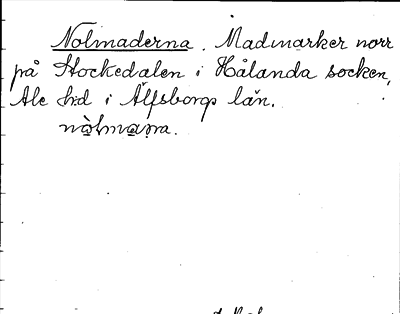 Nolmaderna. Madmarker norr
på Stockedalen i Hålanda socken,
Ale hd i Älfsborgs län.